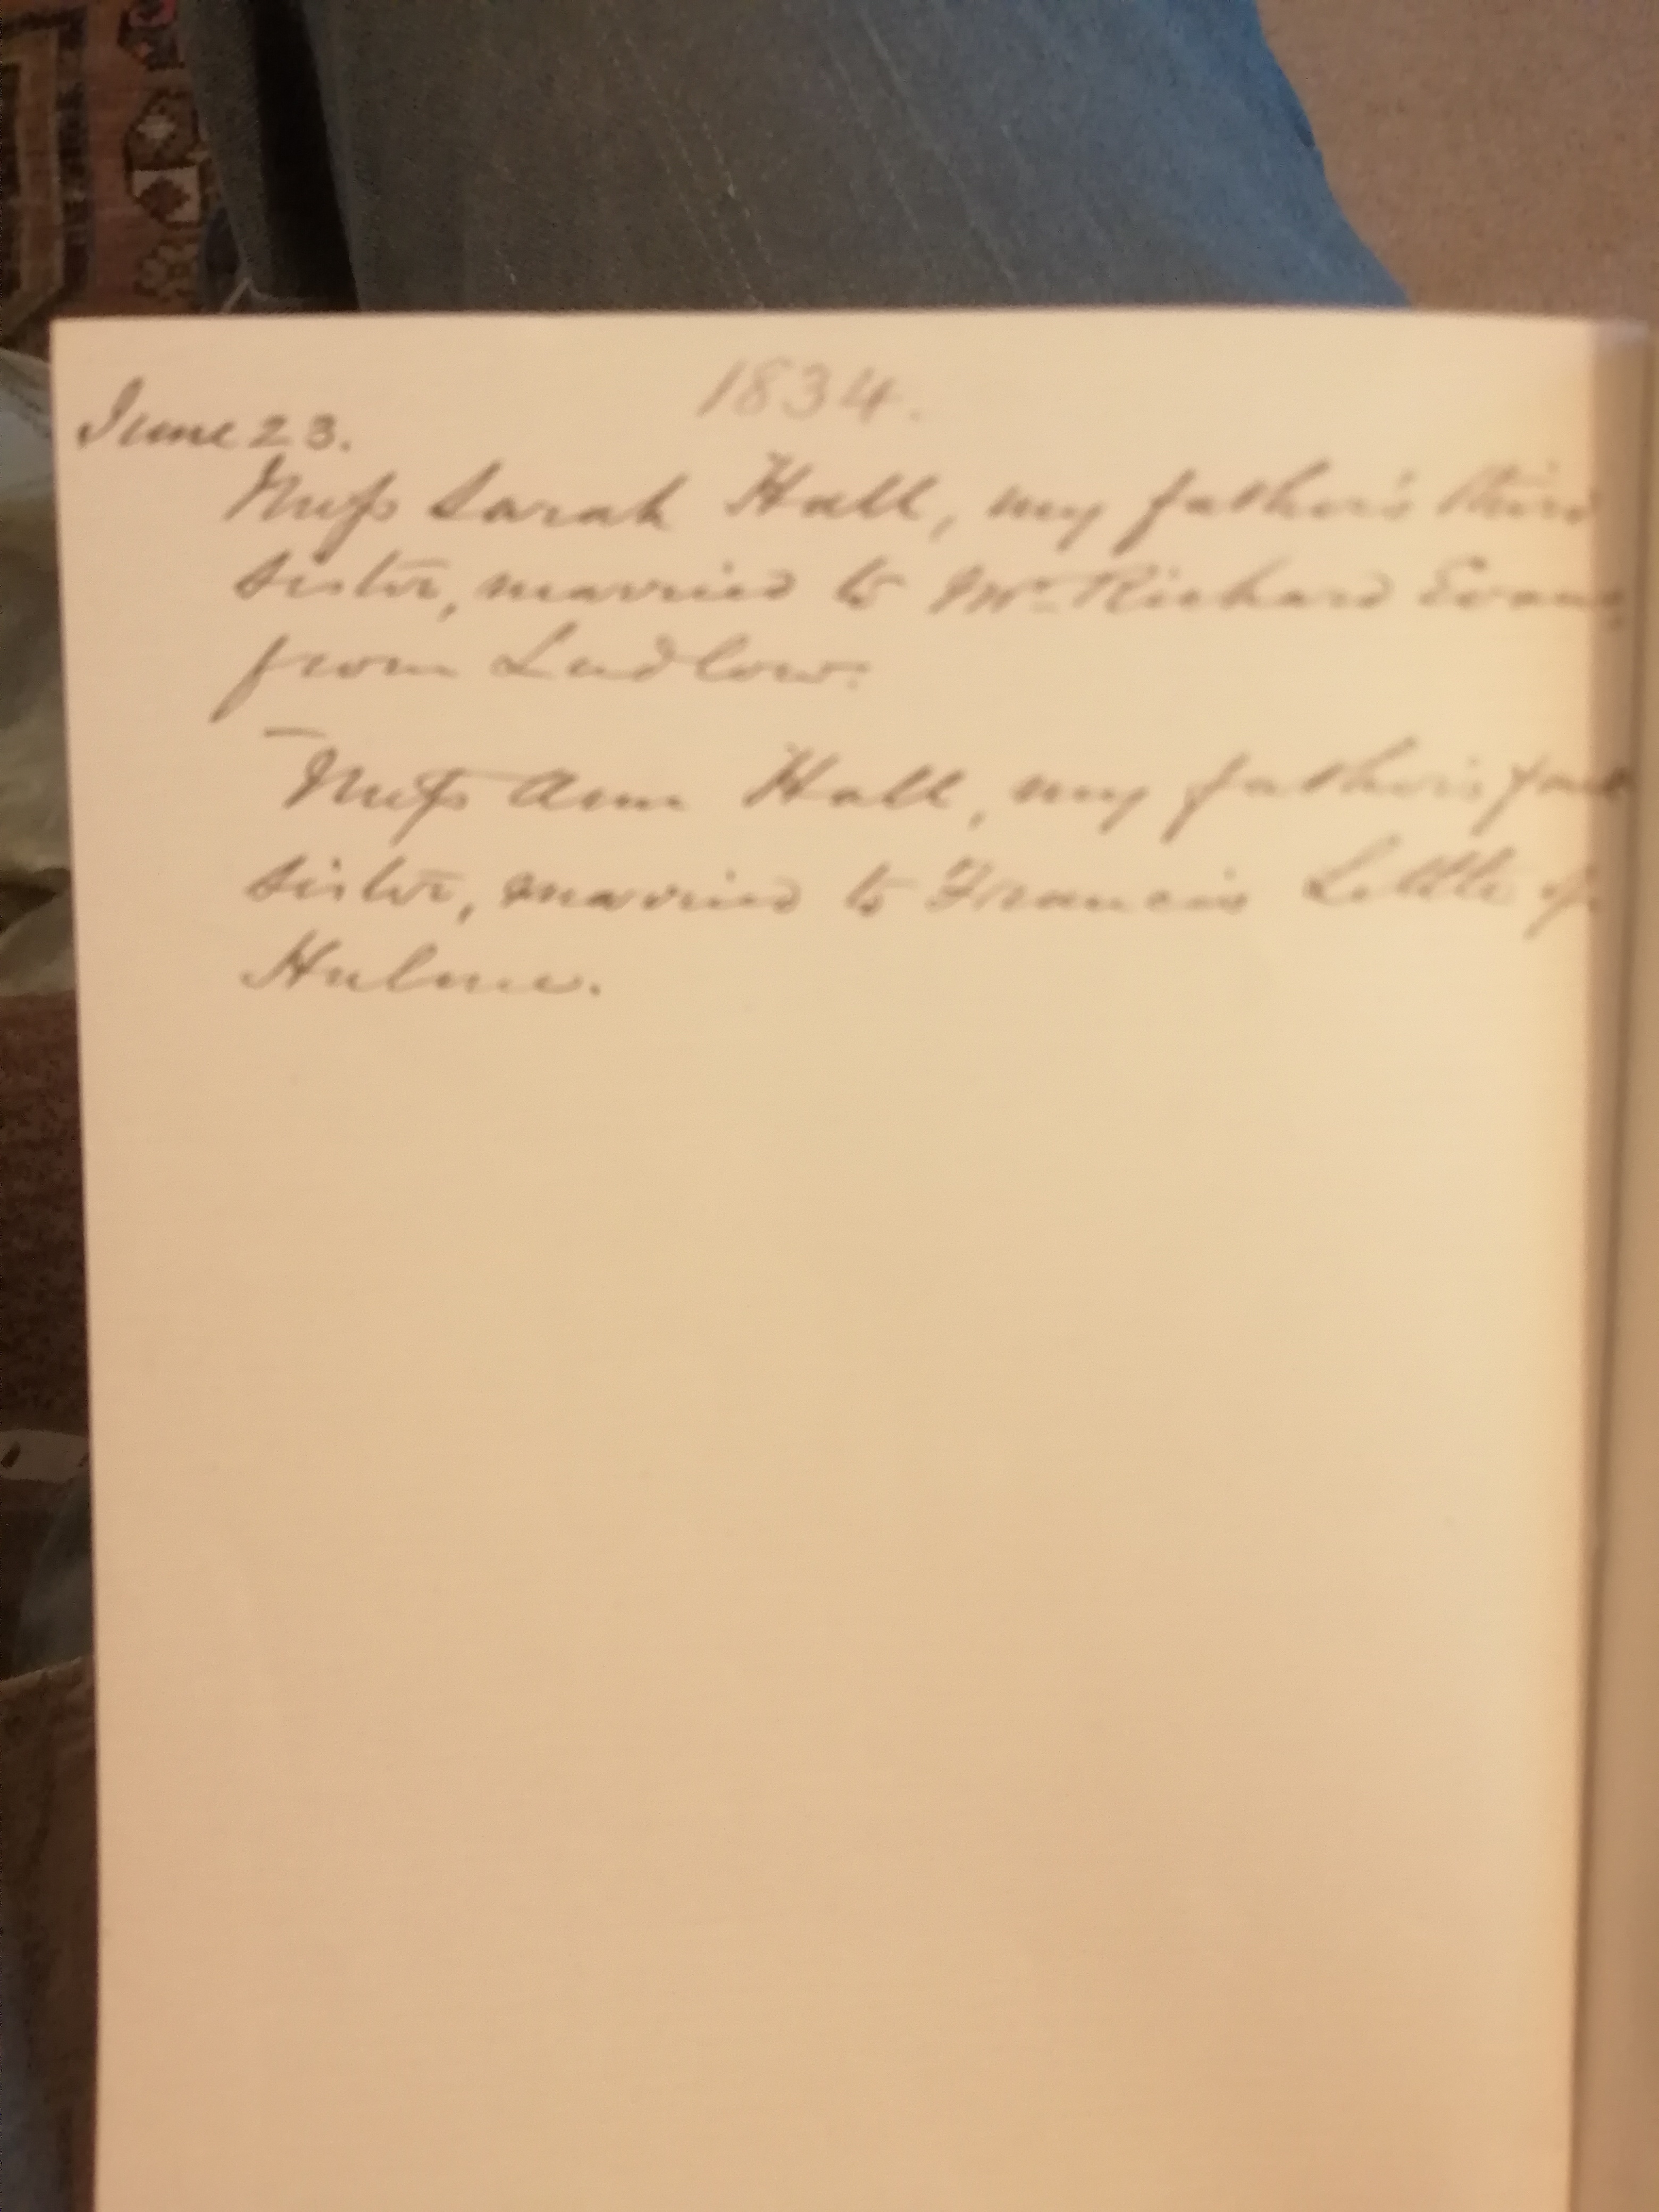 1834.
June 23.
Miss Sarah Hall, my father's third
sister, married to Mr. Richard Evans
from Ludlow.
Miss Ann Hall, my father's
sister, married to Francis Little of
Hulme.